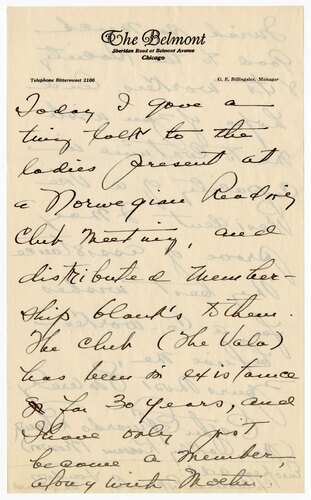 The Belmont
Sheridan Road at Belmont Avenue
Chicago
Telephone Bittersweet 2100
G. E. Billingsley, Manager
Today I gave a
tiny talk to the
ladies present at
a Norwegian Reading
Club Meeting, and
distributed member-
ship blanks to them.
The club (The Vala)
has been in existance
for 30 years, and
I have only just
become a member,
along with Mother.